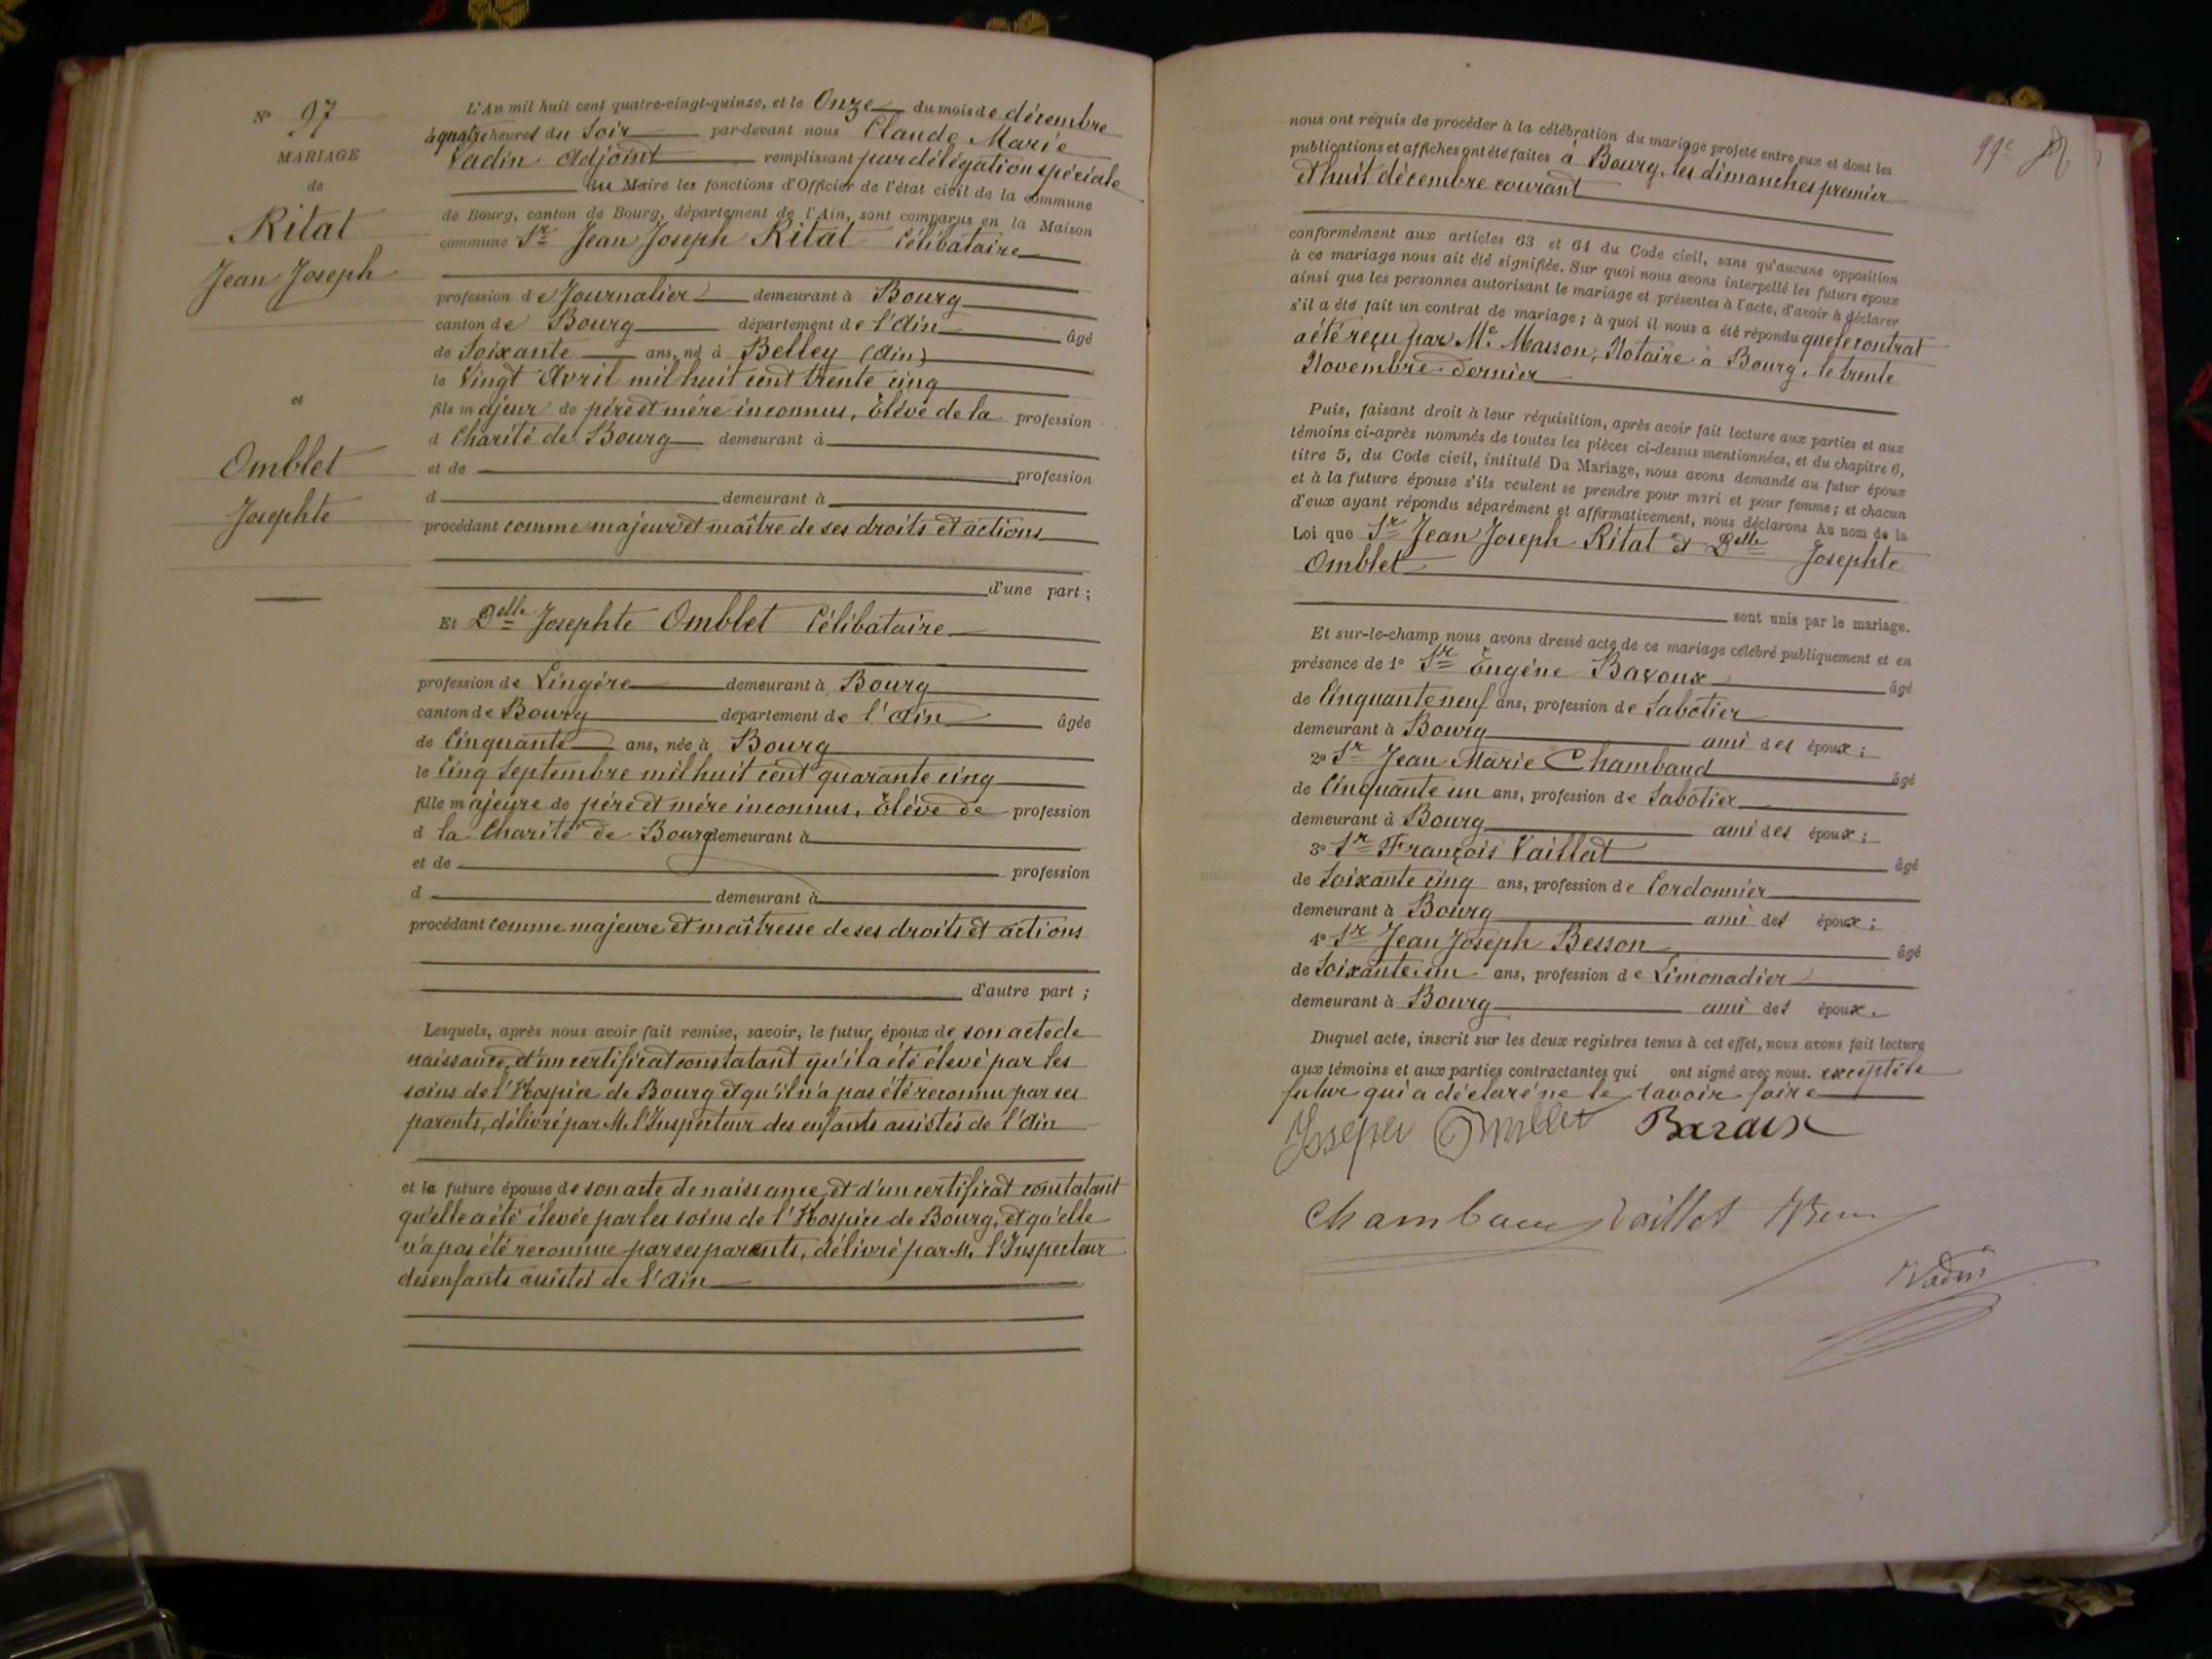 N° 97
MARIAGE
de
Ritat
Jean Joseph
et
Omblet
Josephte
L'An mil huit cent quatre-vingt-quinze, et le Onze du mois de décembre
à quatre heures du Soir par-devant nous Claude Marie
Vadin Adjoint remplissant par délégation spéciale
du Maire les fonctions d'Officier de l'état civil de la commune
de Bourg, canton de Bourg, département de l'Ain, sont comparus en la Maison
commune Sr Jean Joseph Ritat Célibataire
profession de Journalier demeurant à Bourg
canton de Bourg département de l'Ain âgé
de Soixante ans, né à Belley (Ain)
le Vingt Avril mil huit cent trente cinq
fils majeur de père et mère inconnus, Élève de la profession
d Charité de Bourg demeurant à
et de profession
d demeurant à
procédant comme majeur et maître de ses droits et actions
d'une part ;
Et Delle Josephte Omblet Célibataire
profession de Lingère demeurant à Bourg
canton de Bourg département de l'Ain âgée
de Cinquante ans, née à Bourg
le Cinq Septembre mil huit cent quarante cinq
fille majeure de père et mère inconnus, Élève de profession
d la Charité de Bourg demeurant à
et de profession
d demeurant à
procédant comme majeure et maîtresse de ses droits et actions
d'autre part ;
Lesquels, après nous avoir fait remise, savoir, le futur époux de son acte de
naissance, d'un certificat constatant qu'il a été élevé par les
soins de l'Hospice de Bourg et qu'il n'a pas été reconnu par ses
parents, délivré par M. l'Inspecteur des enfants assistés de l'Ain
et la future épouse de son acte de naissance, et d'un certificat constatant
qu'elle a été élevée par les soins de l'Hospice de Bourg, et qu'elle
n'a pas été reconnue par ses parents, délivré par M. l'Inspecteur
des enfants assistés de l'Ain
99e
nous ont requis de procéder à la célébration du mariage projeté entre eux et dont les
publications et affiches ont été faites à Bourg, les dimanches premier
et huit décembre courant
conformément aux articles 63 et 64 du Code civil, sans qu'aucune opposition
à ce mariage nous ait été signifiée. Sur quoi nous avons interpellé les futurs époux
ainsi que les personnes autorisant le mariage et présentes à l'acte, d'avoir à déclarer
s'il a été fait un contrat de mariage ; à quoi il nous a été répondu que le contrat
a été reçu par Me Masson, Notaire à Bourg, le trente
Novembre dernier
Puis, faisant droit à leur réquisition, après avoir fait lecture aux parties et aux
témoins ci-après nommés de toutes les pièces ci-dessus mentionnées, et du chapitre 6,
titre 5, du Code civil, intitulé Du Mariage, nous avons demandé au futur époux
et à la future épouse s'ils veulent se prendre pour mari et pour femme ; et chacun
d'eux ayant répondu séparément et affirmativement, nous déclarons Au nom de la
Loi que Sr Jean Joseph Ritat et Delle Josephte
Omblet
sont unis par le mariage.
Et sur-le-champ nous avons dressé acte de ce mariage célébré publiquement et en
présence de 1° Sr Eugène Bavoux âgé
de Cinquante neuf ans, profession de Sabotier
demeurant à Bourg ami des époux ;
2° Sr Jean Marie Chambaud âgé
de Cinquante un ans, profession de Sabotier
demeurant à Bourg ami des époux ;
3° Sr François Vaillat âgé
de Soixante cinq ans, profession de Cordonnier
demeurant à Bourg ami des époux ;
4° Sr Jean Joseph Besson âgé
de Soixante un ans, profession de Limonadier
demeurant à Bourg ami des époux.
Duquel acte, inscrit sur les deux registres tenus à cet effet, nous avons fait lecture
aux témoins et aux parties contractantes qui ont signé avec nous. excepté le
futur qui a déclaré ne le savoir faire
Omblet
Vadin